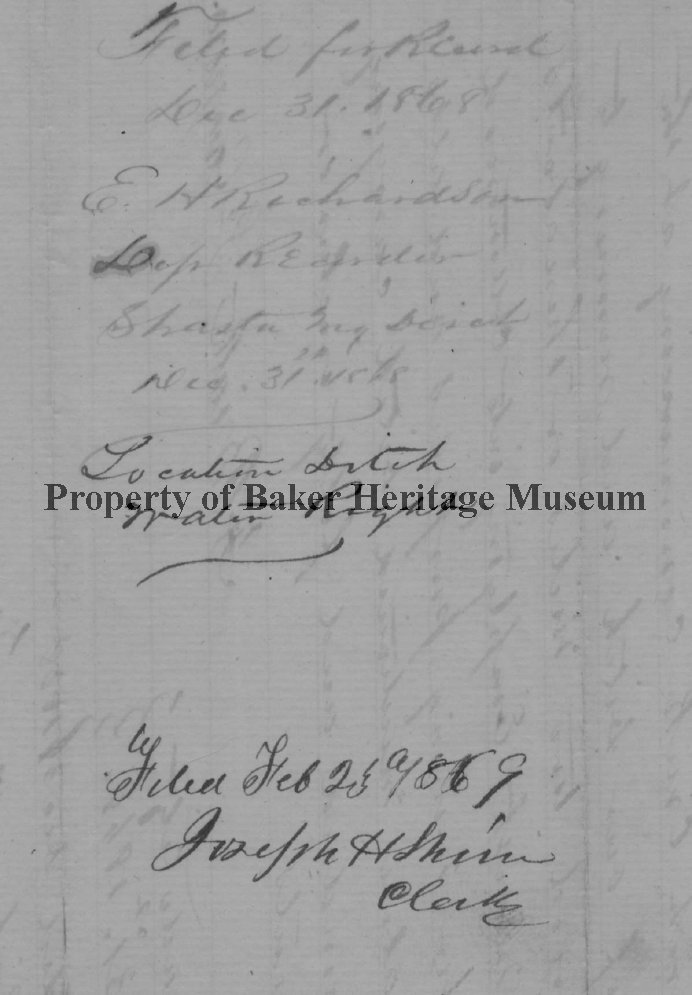 Filed for Record
Dec 31. 1868
E. H Richardson
Dep Recorder
Shasta Mg District
Dec. 31st 1868
Location Ditch
Property of Baker Heritage Museum
Water Right
Filed Feb 1869
Joseph H Shinn
Clerk